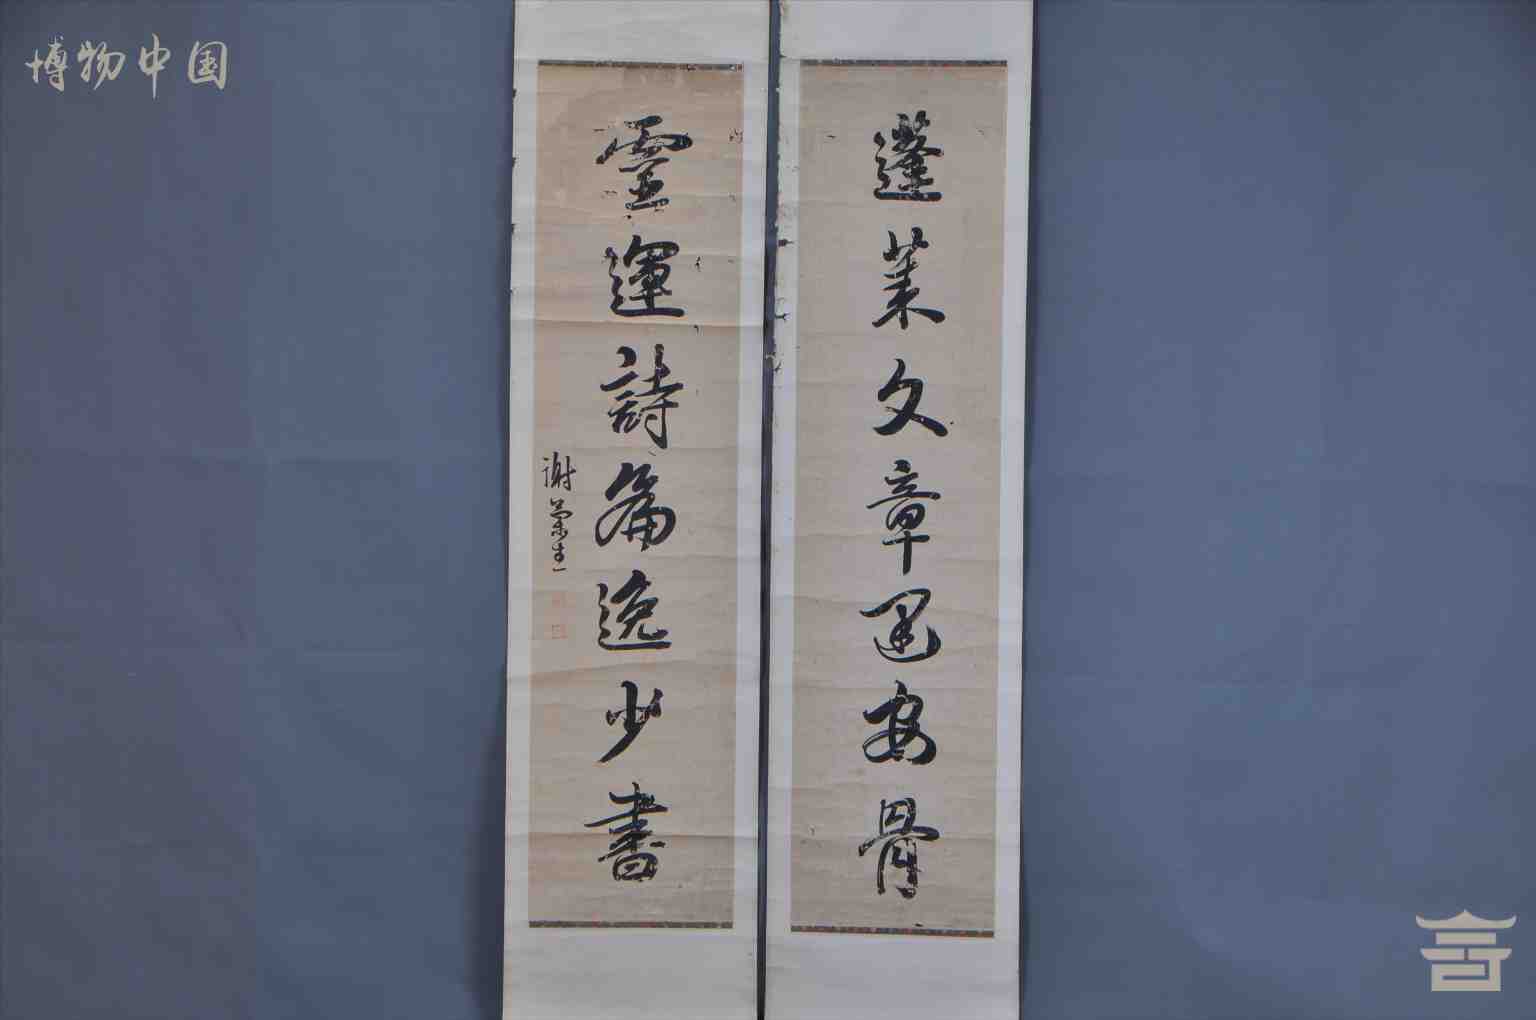 博物中国
蓬莱文章建安骨
靈運詩篇逸少書
謝蘭生